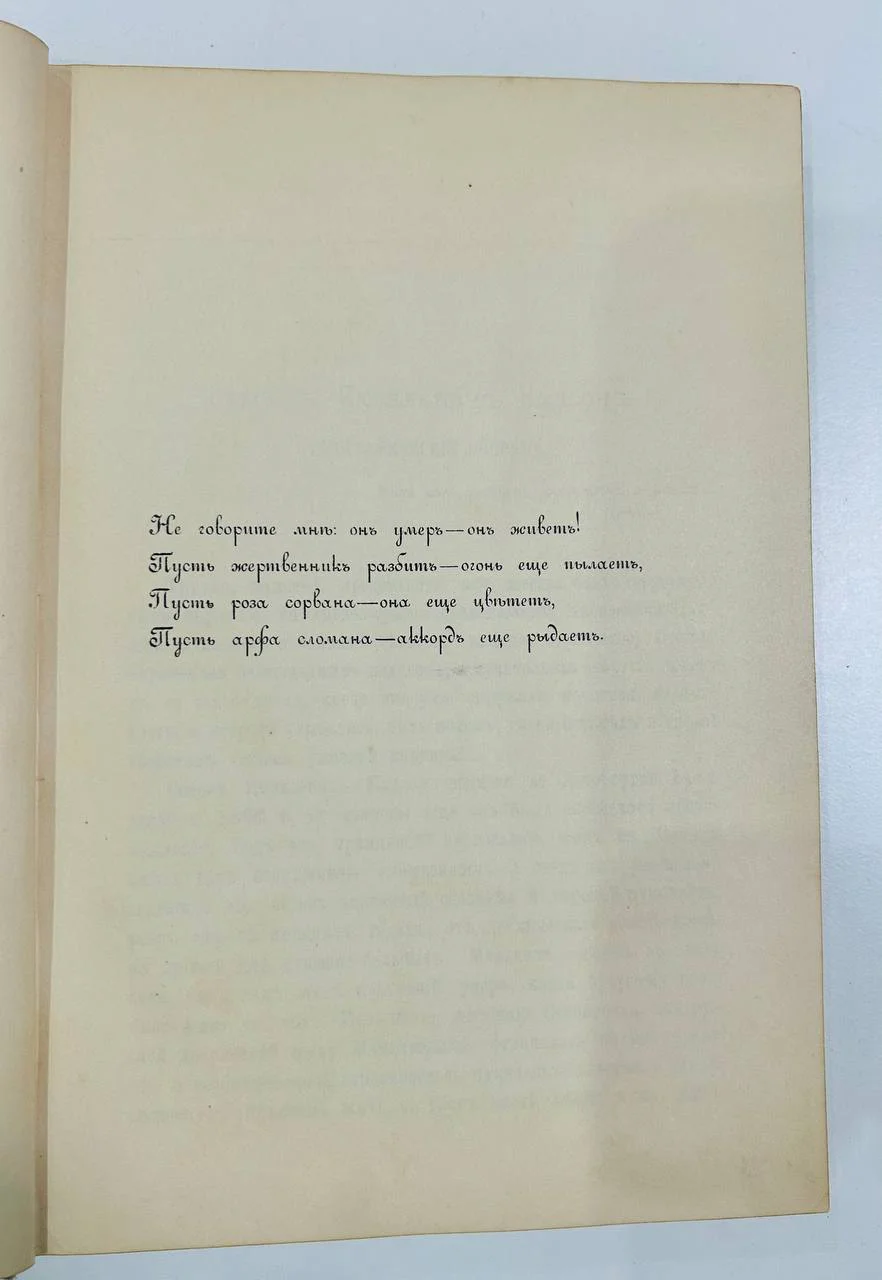 Не говорите мнѣ: онъ умеръ—онъ живетъ!
Пусть жертвенникъ разбитъ—огонь еще пылаетъ,
Пусть роза сорвана—она еще цвѣтетъ,
Пусть арфа сломана—аккордъ еще рыдаетъ.